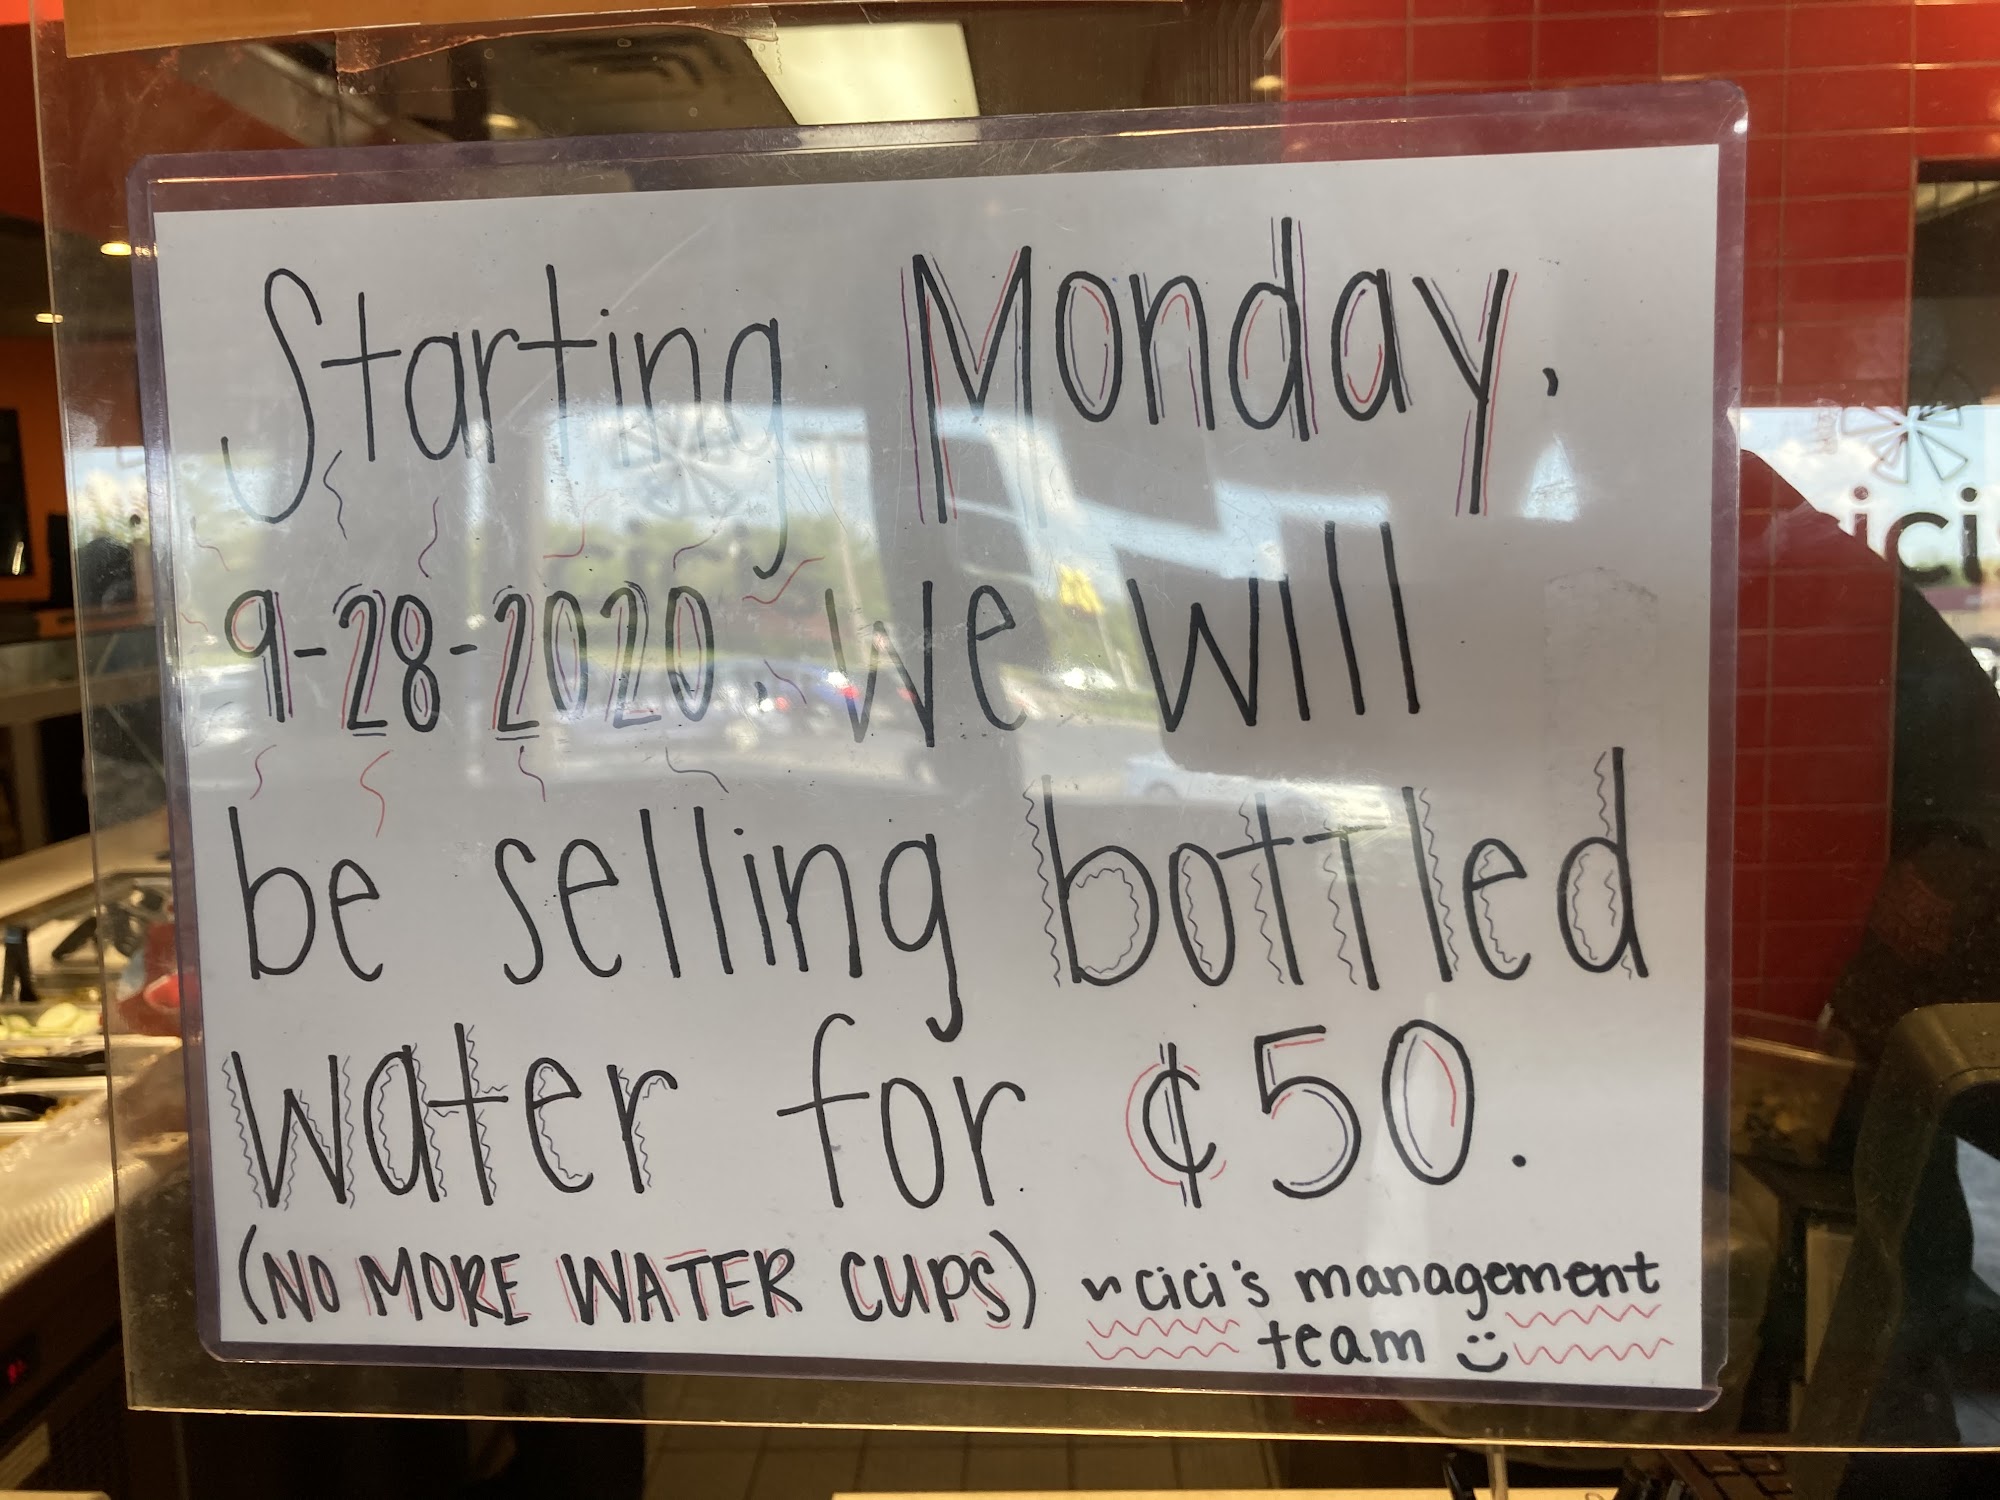 Starting Monday,
9-28-2020, we will
be selling bottled
water for ¢50.
(NO MORE WATER CUPS) ~ cici's management
team :)
ici